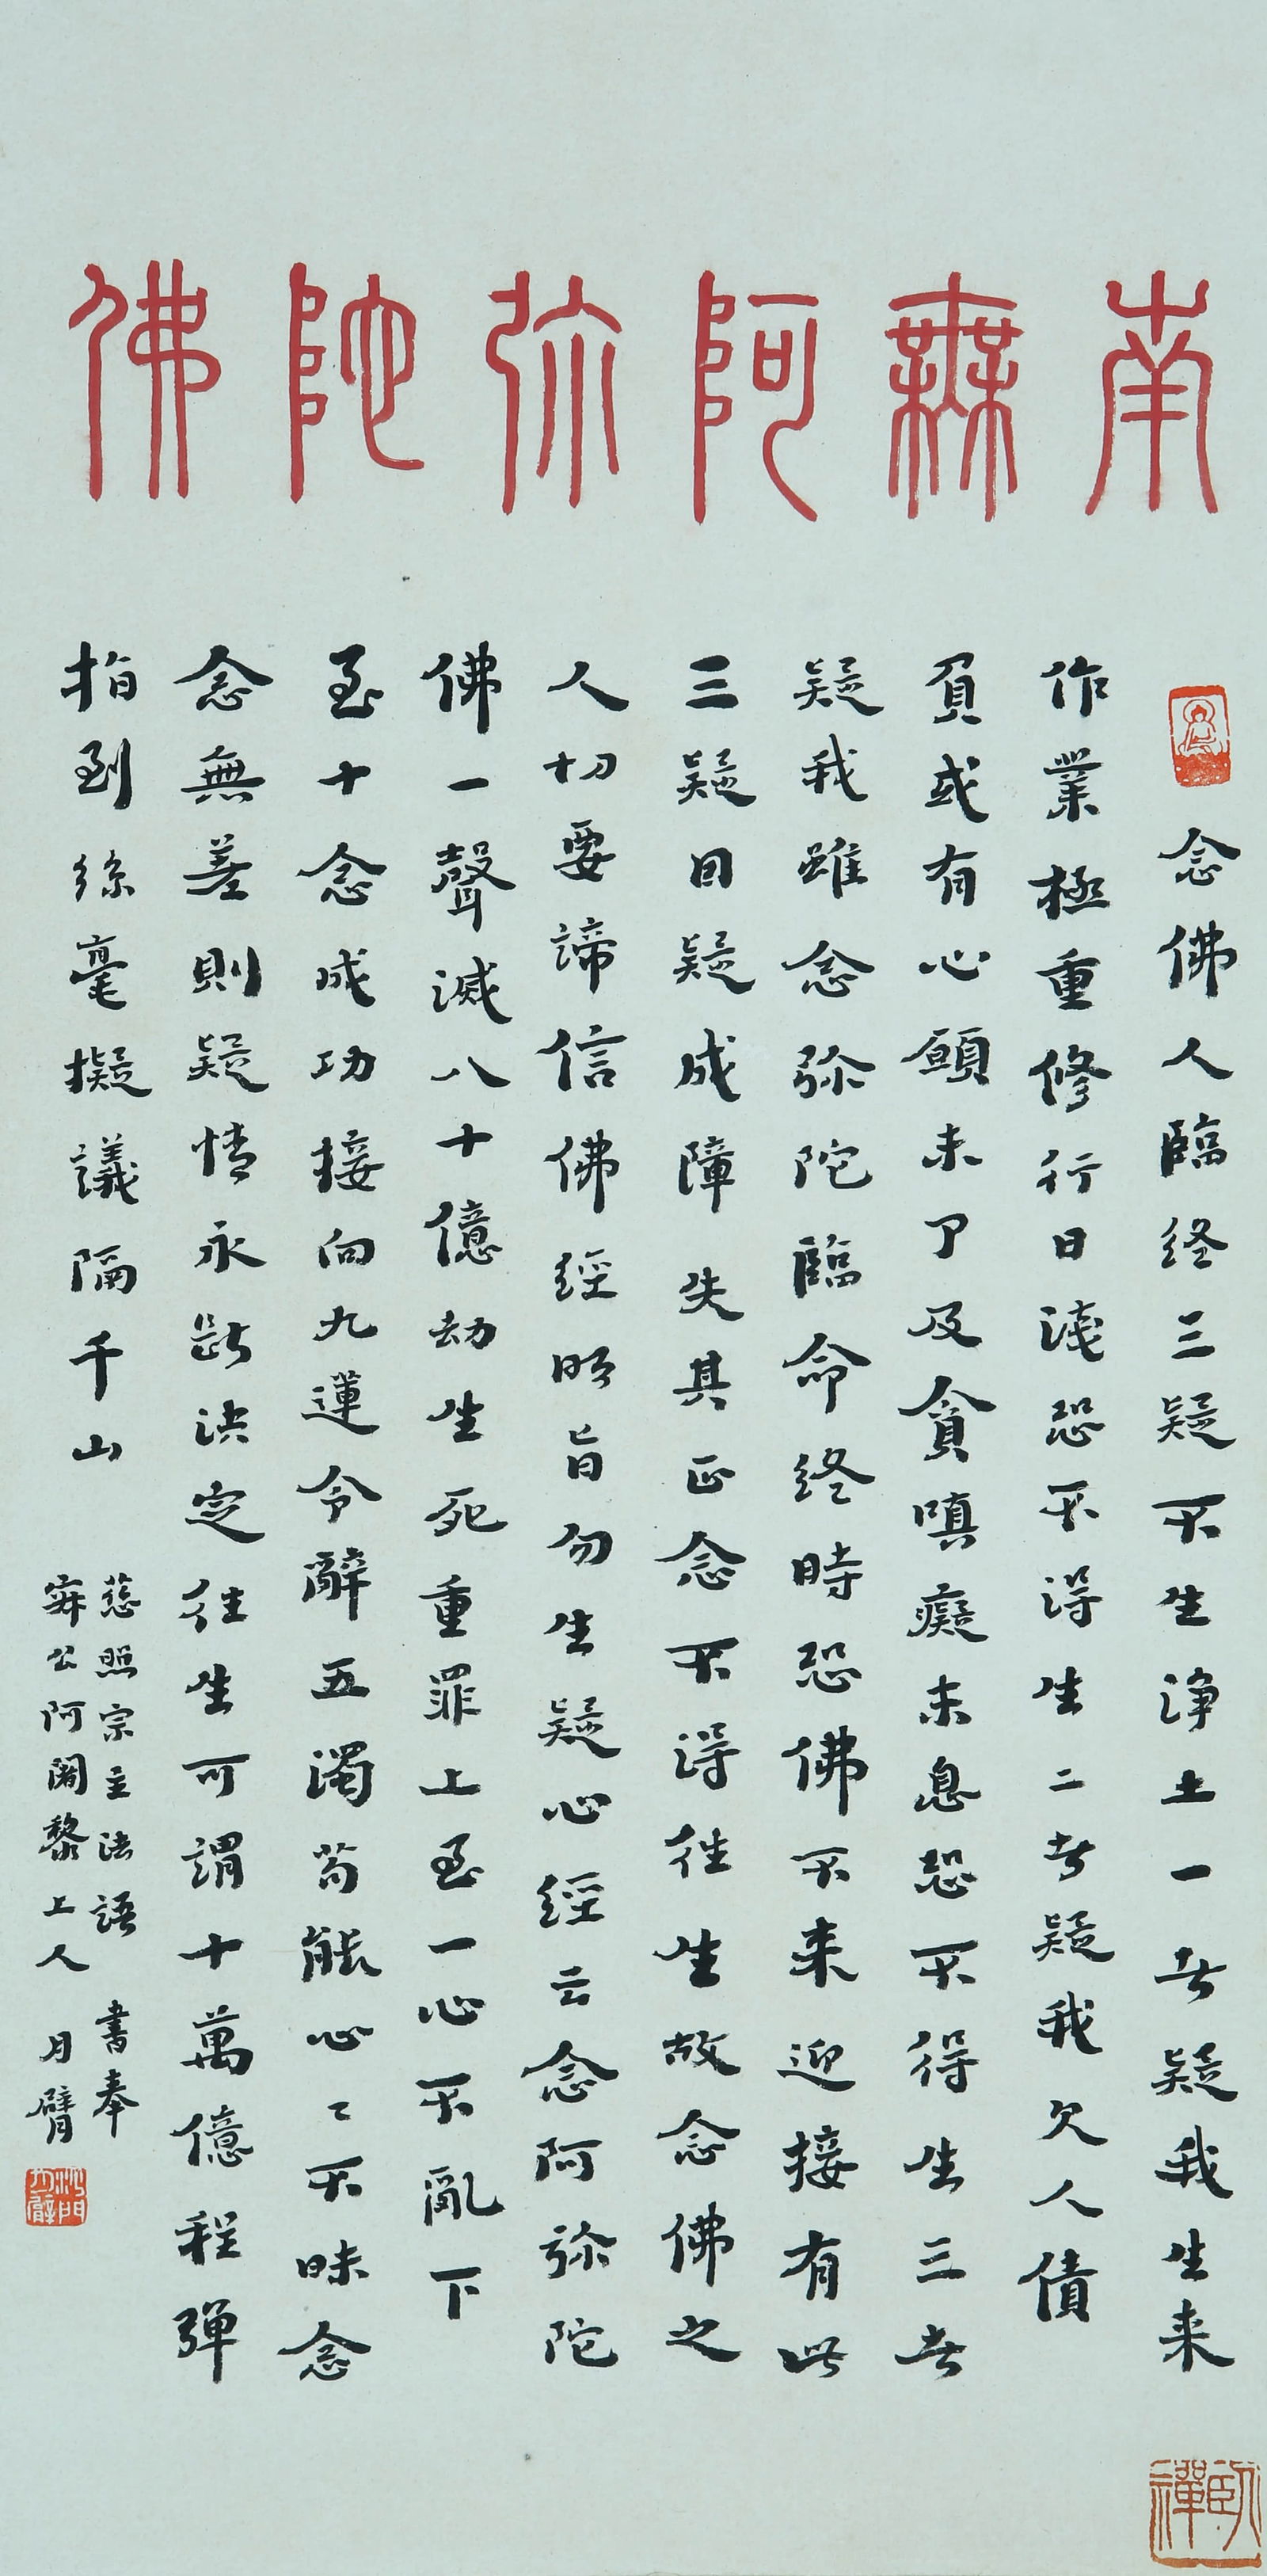 南無阿弥陀佛
念佛人臨終三疑不生淨土一者疑我生来
作業極重修行日淺恐不得生二者疑我欠人債
負或有心願未了及貪嗔癡未息恐不得生三者
疑我雖念弥陀臨命終時恐佛不来迎接有此
三疑因疑成障失其正念不得往生故念佛之
人切要諦信佛經明旨勿生疑心經云念阿弥陀
佛一聲滅八十億劫生死重罪上至一心不亂下
至十念成功接向九蓮令辭五濁苟能心〻不昧念
念無差則疑情永斷決定往生可謂十萬億程弹
指到絲毫擬議隔千山
慈照宗主法語 書奉
寂公阿闍黎上人 月臂
沙門月臂
臥禪